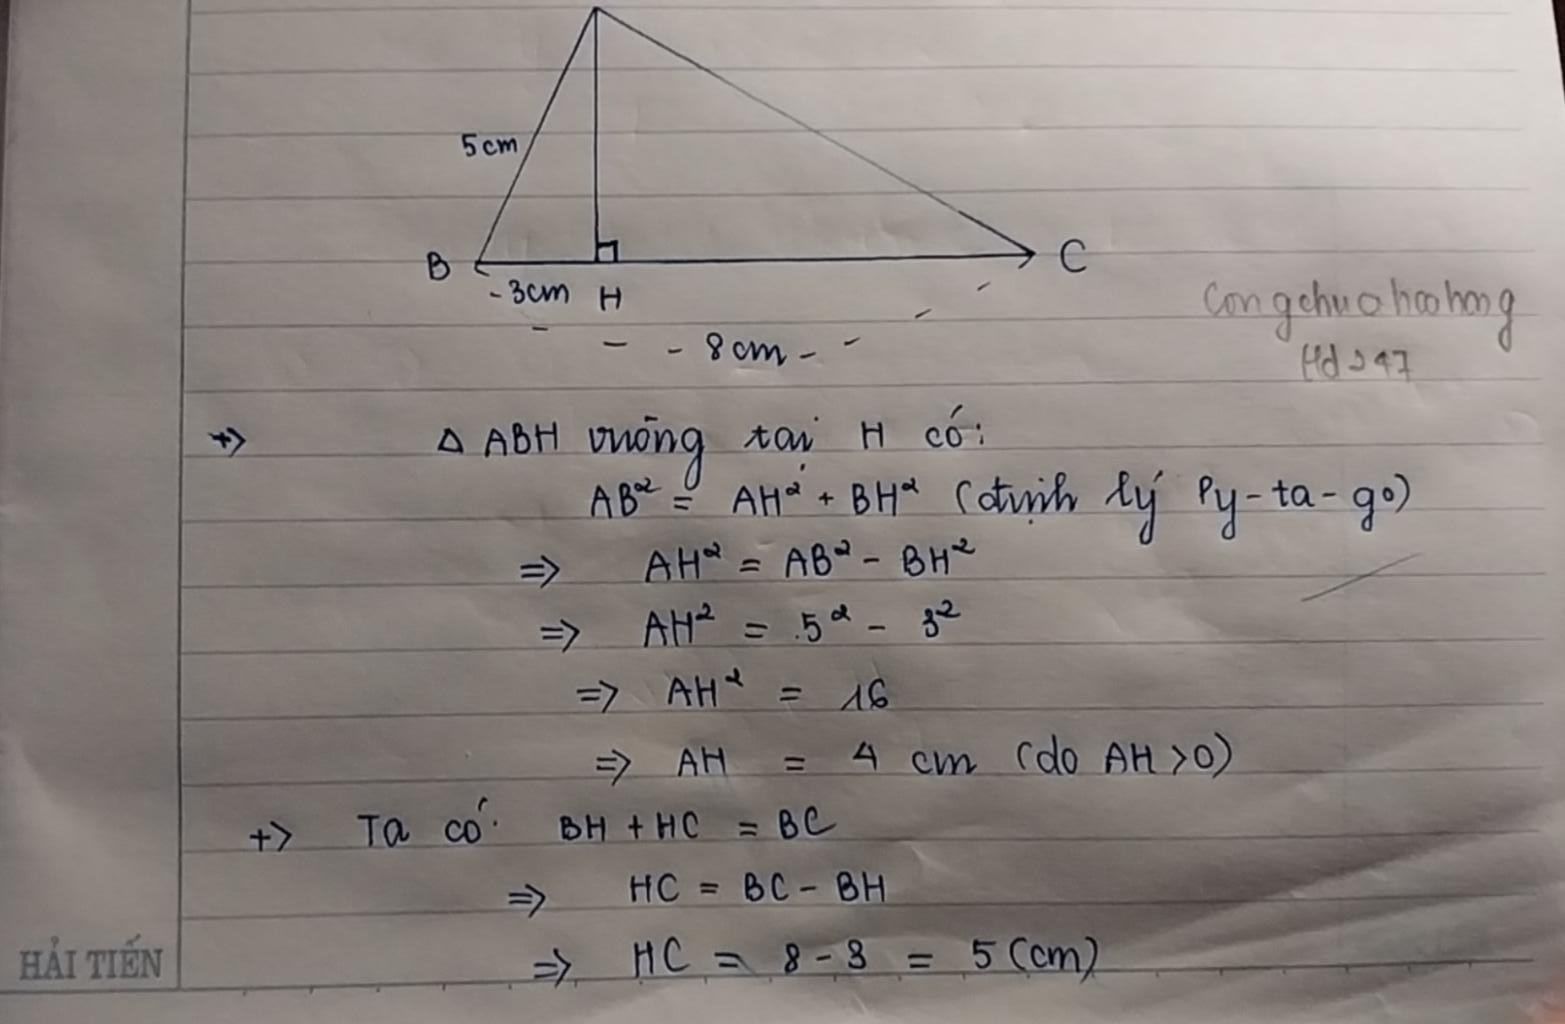 5cm
B
C
-3cm H
- 8cm -
Congchuahoahong
Hd247
+> Δ ABH vuông tại H có:
AB² = AH² + BH² (định lý Py-ta-go)
=> AH² = AB² - BH²
=> AH² = 5² - 3²
=> AH² = 16
=> AH = 4 cm (do AH >0)
+> Ta có: BH + HC = BC
=> HC = BC - BH
=> HC = 8 - 3 = 5 (cm)
HẢI TIẾN